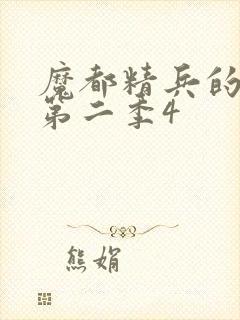 魔都精兵的
第二季4
熊娟